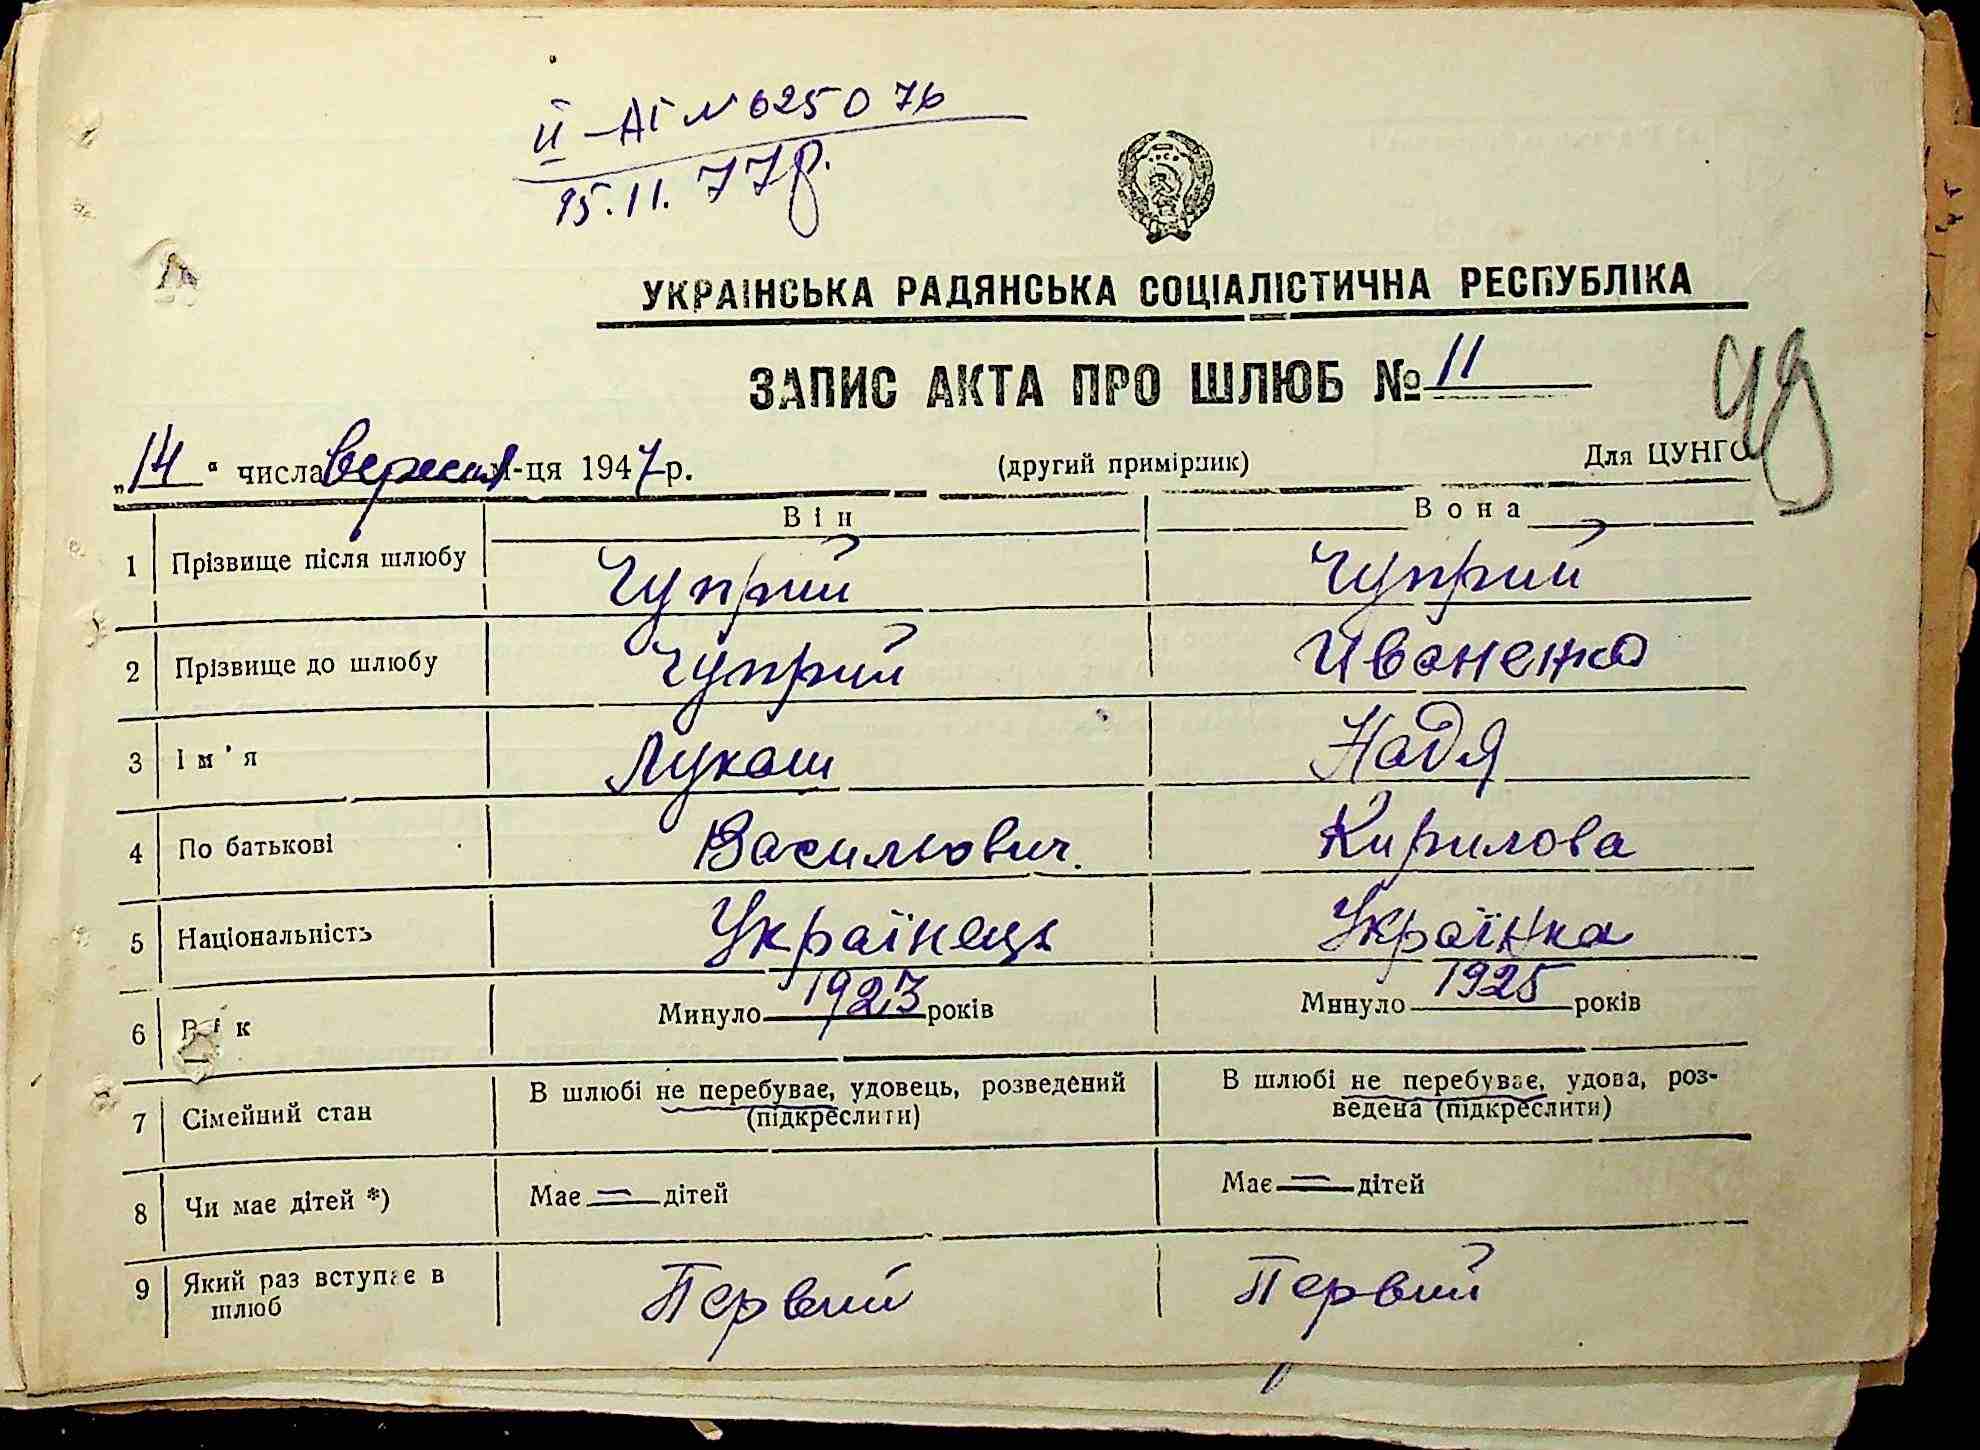 II – АГ № 025076
15.11.77р.
УКРАІНСЬКА РАДЯНСЬКА СОЦІАЛІСТИЧНА РЕСПУБЛІКА
ЗАПИС АКТА ПРО ШЛЮБ № 11
„14“ числа вересня м-ця 1947-р. (другий примірник) Для ЦУНГО
Він Вона
1 Прізвище після шлюбу Чуприй Чуприй
2 Прізвище до шлюбу Чуприй Иваненко
3 Ім'я Лукаш Надя
4 По батькові Васильович. Кирилова
5 Національність Українець Українка
6 Вік Минуло 1923 років Минуло 1925 років
7 Сімейний стан В шлюбі не перебуває, удовець, розведений (підкреслити) В шлюбі не перебуває, удова, роз-
ведена (підкреслити)
8 Чи має дітей *) Має — дітей Має — дітей
9 Який раз вступає в шлюб Первий Первий